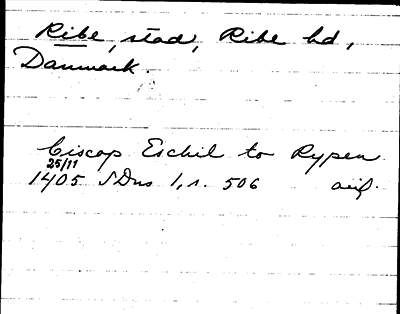 Ribe, stad, Ribe hd,
Danmark.
Biscop Eschil to Rypen
25/11
1405 SDns 1, s. 506 avs.